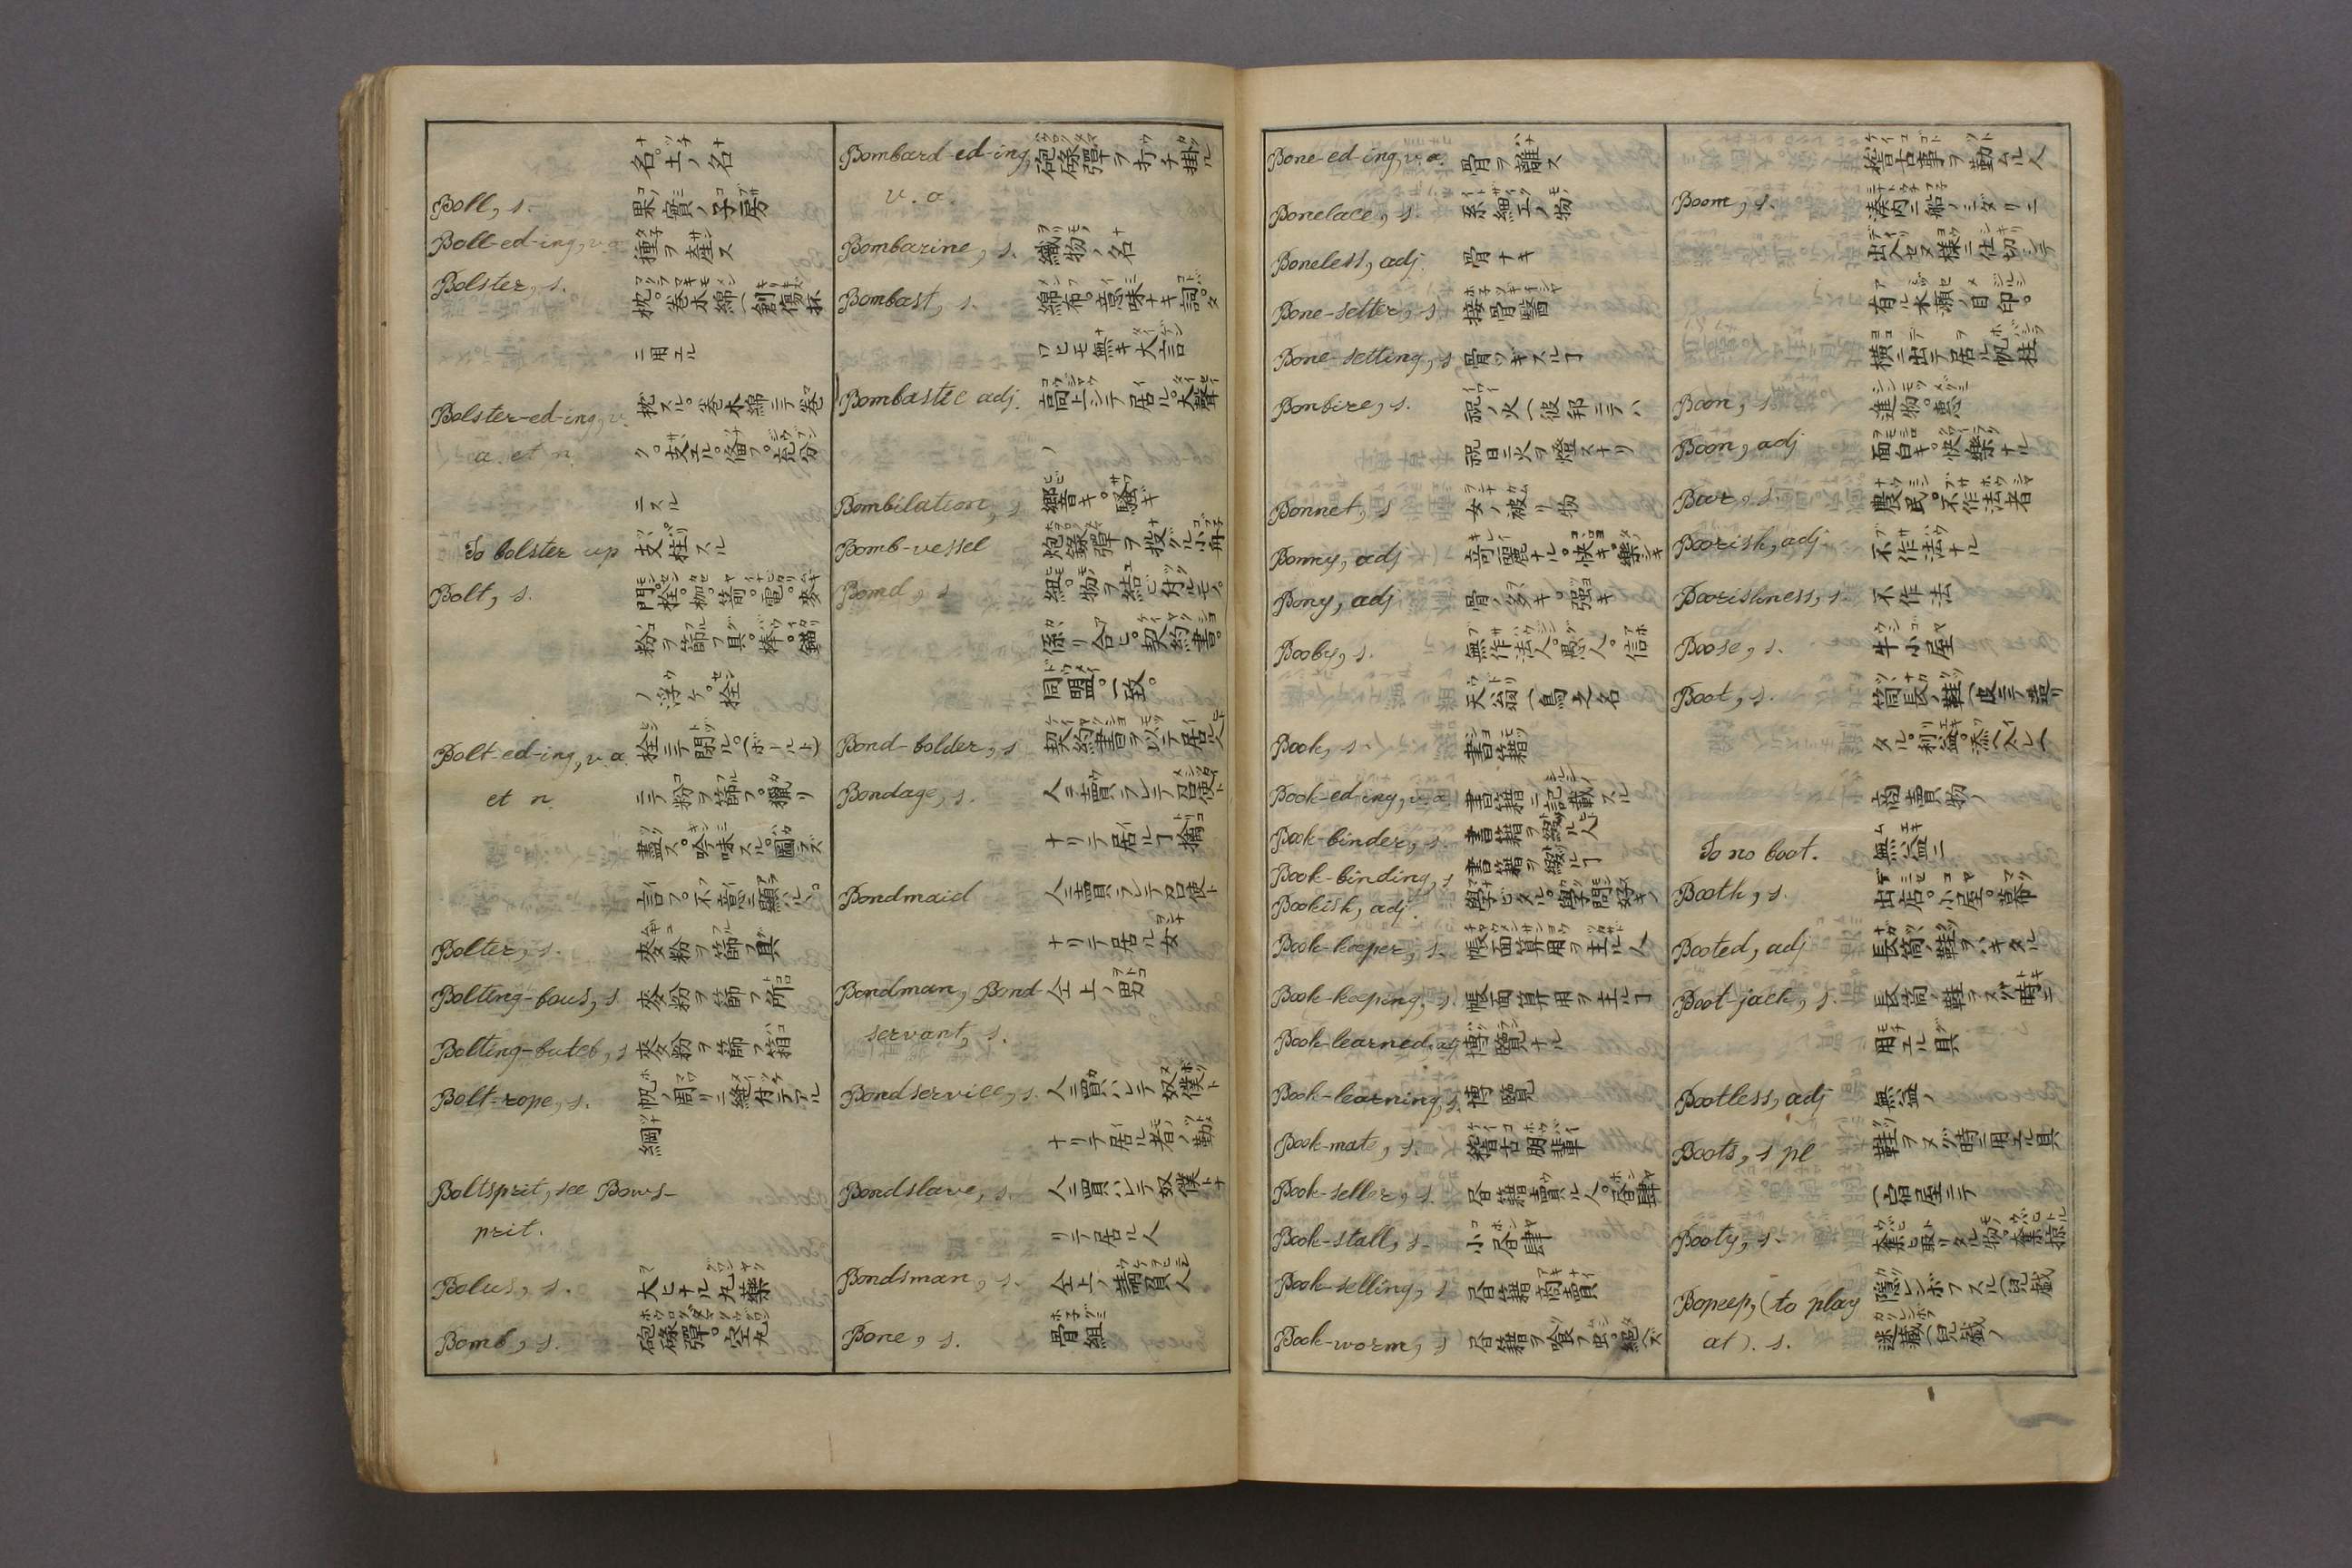 名。土ノ名
Boll, s. 果實ノ子房
Boll-ed-ing, v.a. 種子ヲ產ス
Bolster, s. 枕。卷木綿(創傷抔
ニ用エル
Bolster-ed-ing, v. 枕スル。卷木綿ニテ卷
a. et n. ク。支エル。備フ。充分
ニスル
To bolster up 支柱スル
Bolt, s. 門。栓。枷。箭。電。麥
粉ヲ篩フ具。棒。錨
ノ浮ケ。栓
Bolt-ed-ing, v.a. 栓ニテ閉ル。(ボールト)
et n. ニテ粉ヲ篩フ。獵リ
盡ス。吟味スル。圖ラズ
言フ。不意ニ顯ルヽ
Bolter, s. 麥粉ヲ篩フ具
Bolting-hous, s. 麥粉ヲ篩フ所
Bolting-hutch, s 麥粉ヲ篩フ箱
Bolt-rope, s. 帆ノ周リニ縫付テアル
綱
Boltsprit, see Bows-
prit.
Bolus, s. 大ヒナル丸藥
Bomb, s. 砲碌彈。空丸
Bombard-ed-ing, 砲碌彈ヲ打チ掛ル
v. a.
Bombazine, s. 織物ノ名
Bombast, s. 綿布。意味ナキ詞。タ
ワヒモ無キ大言
Bombastic adj. 高上シテ居ル。大聲
ノ
Bombilation, s 響音キ。騷ギ
Bomb-vessel 炮錄彈ヲ投グル小舟
Bond, s 組。物ヲ結ビ付ルモノ。
係リ合ヒ。契約書。
同盟。一致。
Bond-holder, s 契約書ヲ以テ居ル人
Bondage, s. 人ニ買ワレテ召使ト
ナリテ居ルヿ 擒
Bondmaid 人ニ買ワレテ召使ト
ナリテ居ル女
Bondman, Bond- 仝上ノ男
servant, s.
Bondservice, s. 人ニ買ハレテ奴僕ト
ナリテ居ル者ノ勤
Bondslave, s. 人ニ買ハレテ奴僕トナ
リテ居ル人
Bondsman, s. 仝上ノ請負人
Bone, s. 骨組
Bone-ed-ing, v.a. 骨ヲ離ス
Bonelace, s. 糸細工ノ物
Boneless, adj. 骨ナキ
Bone-setter, s 接骨醫
Bone-setting, s 骨ツギスルヿ
Bonfire, s. 祝ノ火(彼邦ニテハ
祝日ニ火ヲ燈スナリ
Bonnet, s 女ノ被リ物
Bonny, adj 奇麗ナル。快キ。樂シキ
Bony, adj 骨ノ多キ。强キ
Booby, s. 無作法人。愚人。信
天翁(鳥之名
Book, s. 書籍
Book-ed-ing, v.a. 書籍ニ記載スル
Book-binder, s. 書籍ヲ綴ル人
Book-binding, s 書籍ヲ綴ルヿ
Bookish, adj. 學ビタル。學問好キノ
Book-keeper, s. 帳面算用ヲ主ル人
Book-keeping, s. 帳面算用ヲ主ルヿ
Book-learned, adj 博覽ナル
Book-learning, s. 博覽
Book-mate, s. 稽古朋輩
Book-seller, s. 书籍賣ル人。书肆
Book-stall, s. 小书肆
Book-selling, s 书籍商賣
Book-worm, s 书籍ヲ喰フ虫。絕ヘズ
稽古事ヲ勤ムル人
Boom, s. 湊內ニ船ノミダリニ
出入セヌ樣ニ仕切シテ
有ル木瀨ノ目印。
橫ニ出テ居ル帆柱
Boon, s 進物。惠
Boon, adj 面白キ。快樂ナル
Boor, s. 農民。不作法者
Boorish, adj. 不作法ナル
Boorishness, s. 不作法
Boose, s. 牛小屋
Boot, s. 筒長ノ鞋(
タル。利益。添(
商賣物ノ
To no boot. 無益ニ
Booth, s. 出店。小屋。幕
Booted, adj 長筒ノ鞋ヲハキタル
Boot-jack, s. 長筒ノ鞋ヲヌグ時ニ
用エル具
Bootless, adj 無益ノ
Boots, s pl 鞋ヲヌグ時ニ用エル具
(宿屋ニテ
Booty, s. 奪ヒ取リタル物。奪掠
Bopeep, (to play 隱レンボフスル(兒戲
at). s. 迷藏(兒戲ノ